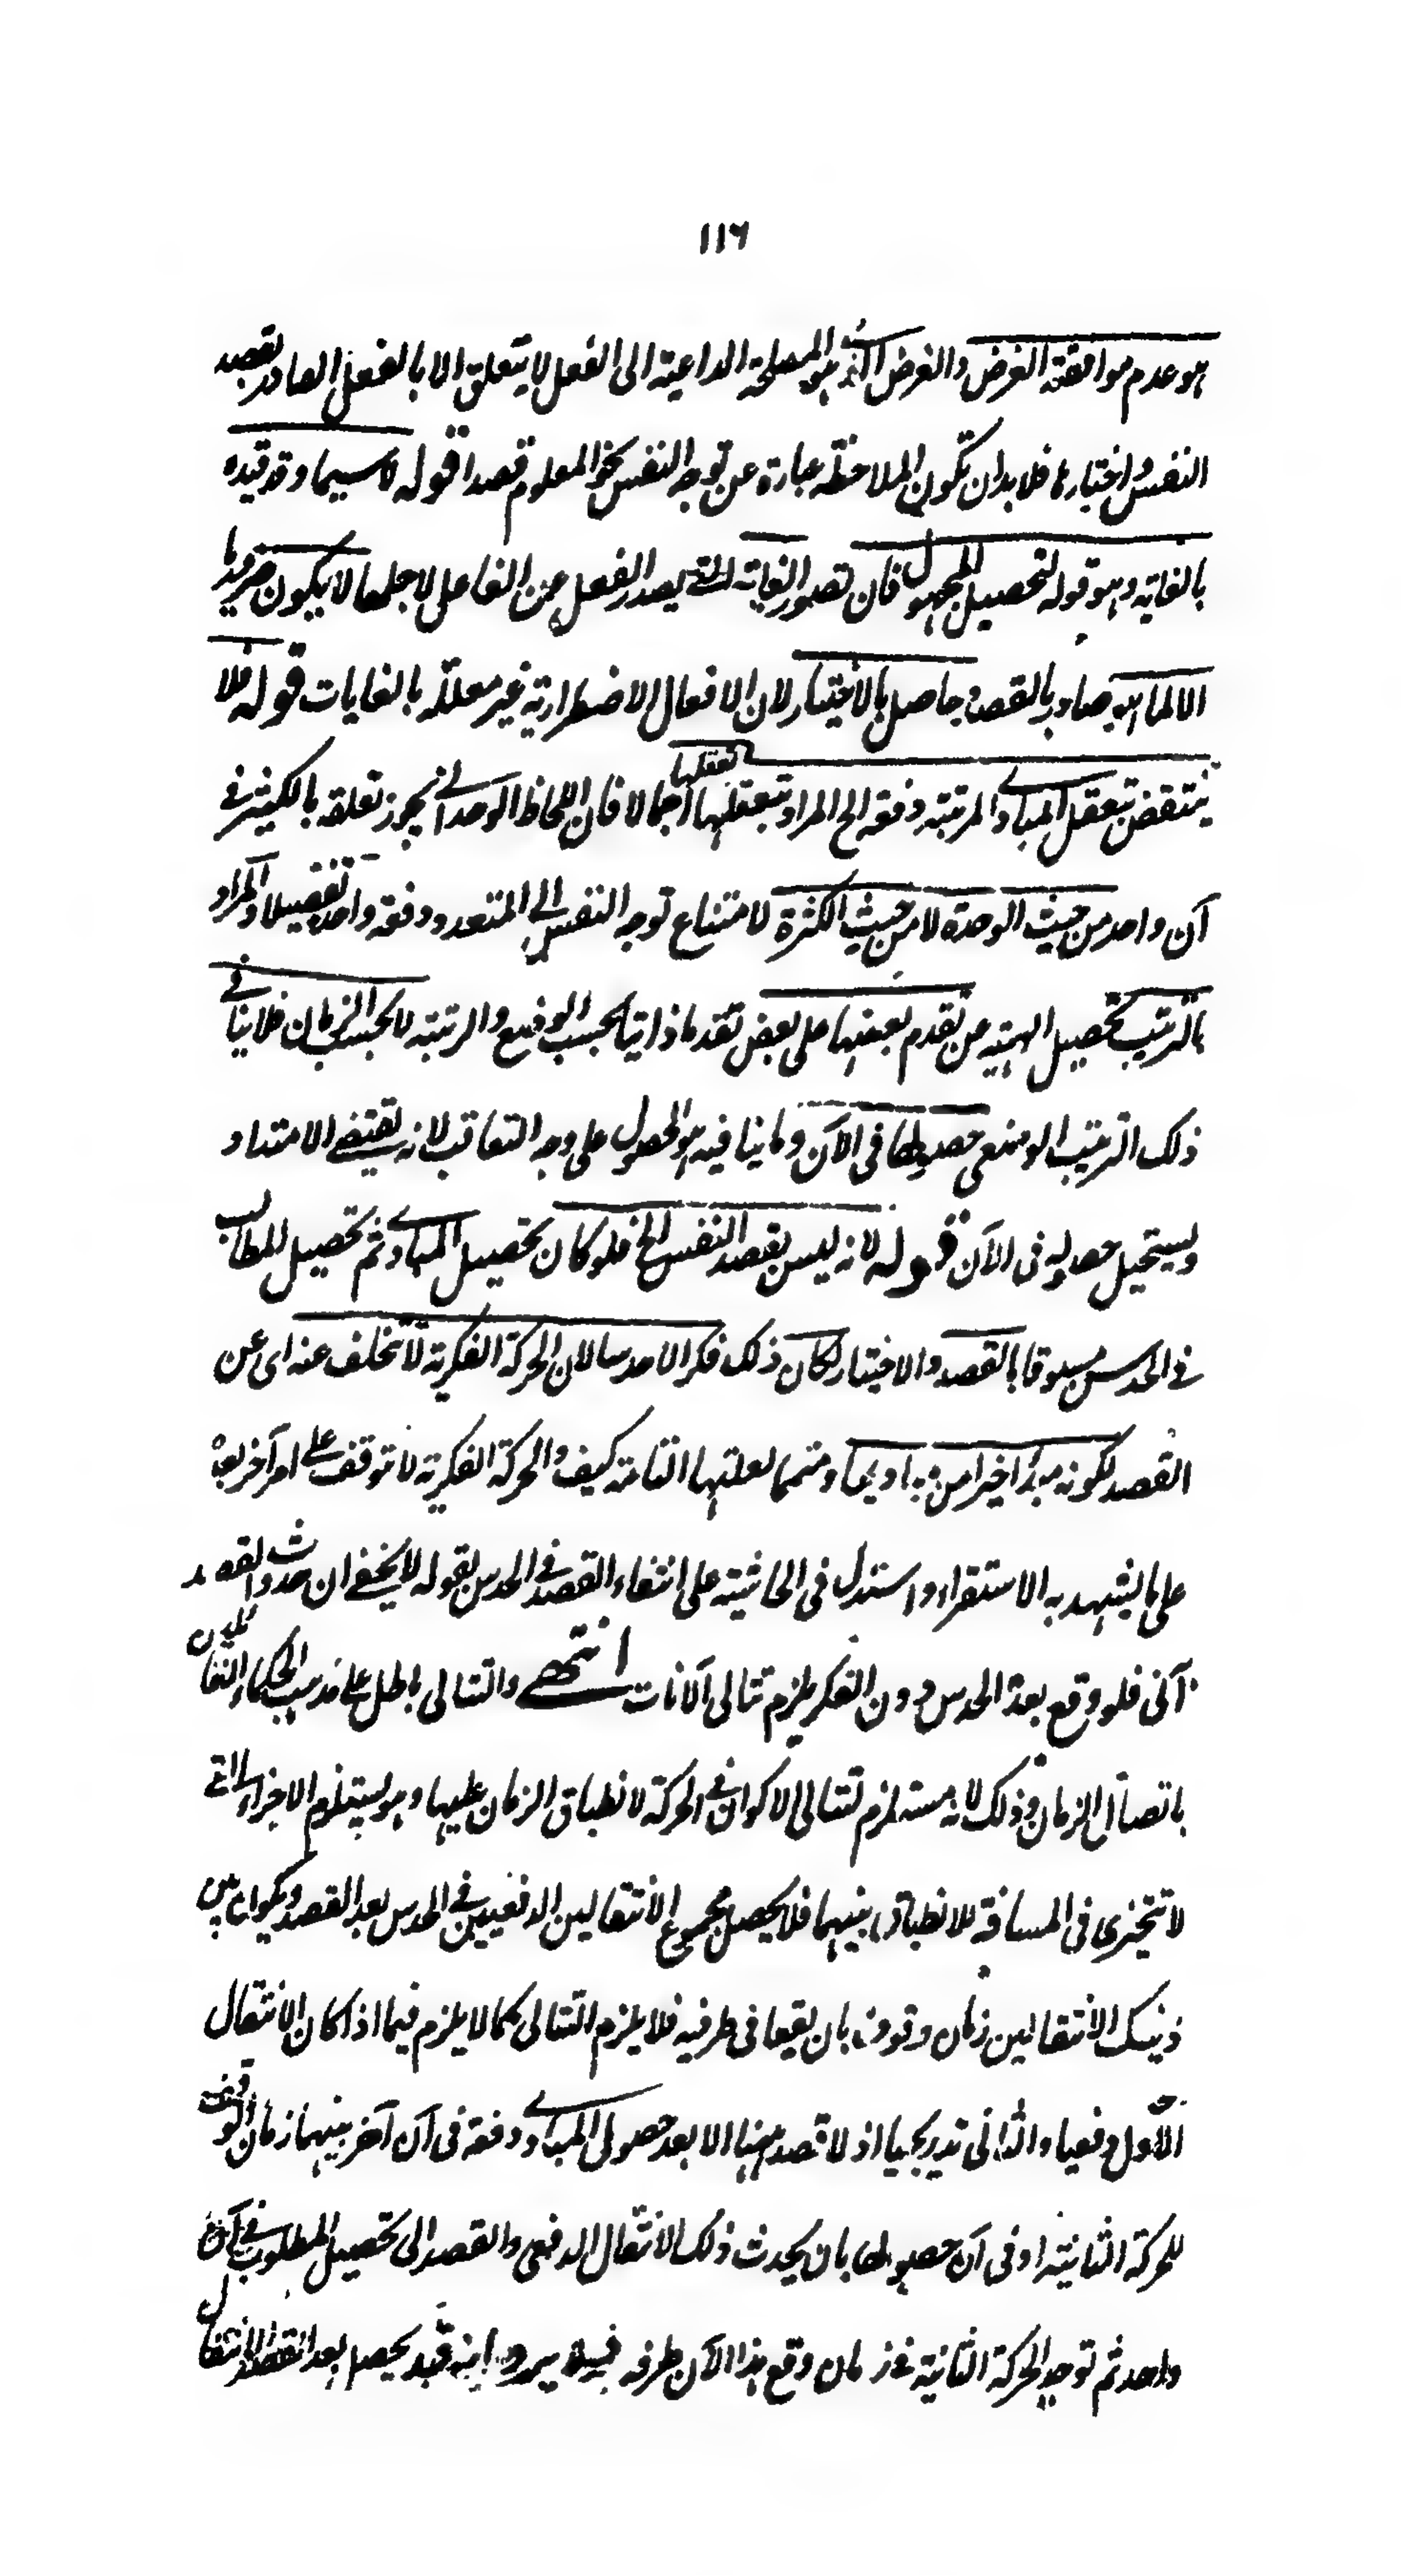 ١١٦
هو عدم موافقته الغرض والغرض الذي هو المصلحة الداعية الى الفعل لا يتعلق الا بالفعل الصادر بقصد
النفس واختيارها فلا بد ان تكون الملاحظة عبارة عن توجه النفس نحو المعلوم قصدا قوله لا سيما وقد قيده
بالغاية وهو قوله لتحصيل المجهول فان تصور الغاية التي يصدر الفعل عن الفاعل لاجلها لا يكون ضروريا
الا لما هو صادر بالقصد وحاصل بالاختيار لان الافعال الاضطرارية غير معللة بالغايات قوله فلا
ينتقض بتعقل المبادي المرتبة دفعة الخ المراد بتعقلها تعقلها اجمالا فان اللحاظ الوحداني يجوز تعلقه بالكثير في
آن واحد من حيث الوحدة لا من حيث الكثرة لامتناع توجه النفس الى المتعدد دفعة واحدة تفصيلا والمراد
بالترتيب تحصيل الهيئة من تقدم بعضها على بعض تقدما ذاتيا بحسب الوضع والرتبة لا بحسب الزمان فلا ينافي
ذلك الترتيب الوضعي حصولها في الآن وما ينافيه هو الحصول على وجه التعاقب لانه يقتضي الامتداد
ويستحيل حصوله في الآن قوله لانه ليس بقصد النفس الخ فلو كان تحصيل المبادي ثم تحصيل المطالب
في الحدس مسبوقا بالقصد والاختيار لكان ذلك فكرا لا حدسا لان الحركة الفكرية لا تتخلف عنه اي عن
القصد لكونه مبدأ اخيرا من مباديها ومتمما لعلتها التامة كيف والحركة الفكرية لا تتوقف على امر آخر بعده
على ما يشهد به الاستقراء واستدل في الحاشية على انتفاء القصد في الحدس بقوله لا يخفى ان حدوث القصد
آني فلو وقع بعده الحدس دون الفكر يلزم تتالي الآنات انتهى والتتالي باطل على مذهب الحكماء القائلين
باتصال الزمان وذلك لانه مستلزم لتتالي الاكوان في الحركة لانطباق الزمان عليها وهو يستلزم الاجزاء التي
لا تتجزى في المسافة للانطباق بينهما فلا يحصل مجموع الانتقالين الدفعيين في الحدس بعد القصد ويكون بين
ذينك الانتقالين زمان وقوف بان يقعا في طرفيه فلا يلزم التتالي كما لا يلزم فيما اذا كان الانتقال
الاول دفعيا والثاني تدريجيا اذ لا قصد ههنا الا بعد حصول المبادي دفعة في آن آخر بينهما زمان الوقف
للحركة الثانية او في آن حصولها بان يحدث ذلك الانتقال الدفعي والقصد الى تحصيل المطلوب في آن
واحد ثم توجد الحركة الثانية في زمان وقع هذا الآن طرفه فيه يرد انه قد يحصل بعد القصد الانتقال